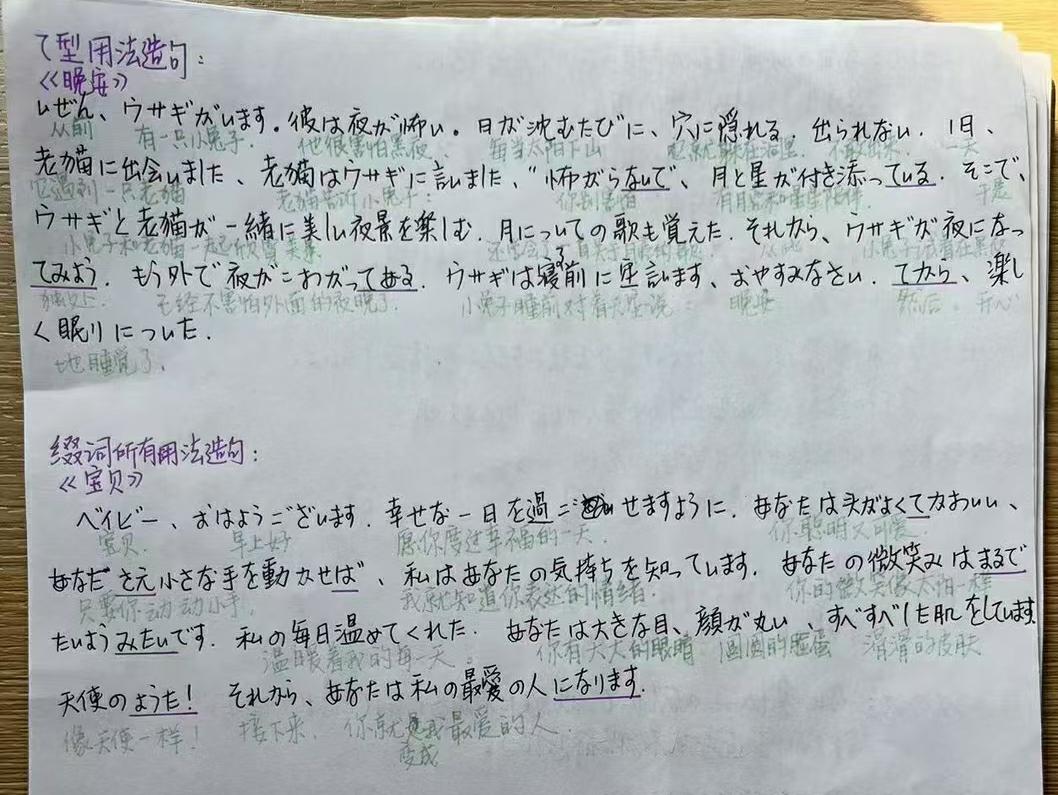 て型用法造句：
《晚安》
いぜん、ウサギがいます。彼は夜が怖い。日が沈むたびに、穴に隠れる．出られない．1日、
从前 有一只小兔子． 他很害怕黑夜、 每当太阳下山 它就躲在洞里． 一天
老猫に出会いました、老猫はウサギに言いました、"怖がらないで、月と星が付き添っている．そこで、
它遇到一只老猫 老猫告诉小兔子： 你别害怕 于是
ウサギと老猫が一緒に美しい夜景を楽しむ．月についての歌も覚えた．それから、ウサギが夜になっ
小兔子和老猫一起欣赏美景
てみよう．もう外で夜がこわがってある．ウサギは寝る前に星に言います、おやすみなさい．てから、楽し
已经不害怕外面的夜晚了． 小兔子睡前对着天星说： 晚安 然后。开心
く眠りについた．
地睡觉了．
缀词所有用法造句：
《宝贝》
ベイビー、おはようございます．幸せな一日を過ごせますように．あなたは头がよくてかわいい、
宝贝． 早上好 愿你度过幸福的一天． 你聪明又可爱
あなたさえ小さな手を動かせば、私はあなたの気持ちを知っています．あなたの微笑みはまるで
只要你动动小手， 我就知道你表达的情绪． 你的微笑像太阳一样
たいようみたいです．私の毎日温めてくれた．あなたは大きな目、顔が丸い、すべすべした肌をしています．
温暖着我的每一天。 你有大大的眼睛 圆圆的脸蛋 滑滑的皮肤
天使のようた！それから、あなたは私の最愛の人になります．
像天使一样！ 接下来， 你就是我最爱的人．
变成